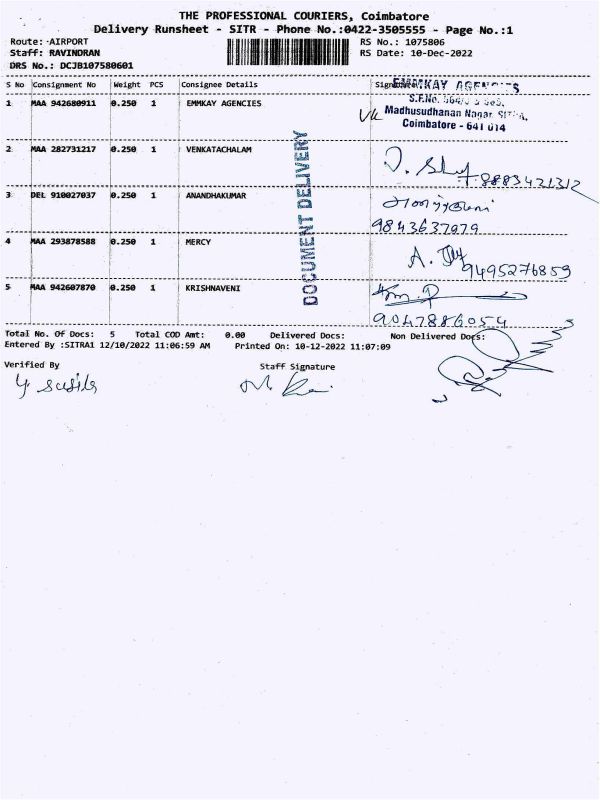 THE PROFESSIONAL COURIERS, Coimbatore
Delivery Runsheet - SITR - Phone No.:0422-3505555 - Page No.:1
Route: -AIRPORT RS No.: 1075806
Staff: RAVINDRAN RS Date: 10-Dec-2022
DRS No.: DCJB107580601
S No Consignment No Weight PCS Consignee Details
1 MAA 942680911 0.250 1 EMMKAY AGENCIES
EMMKAY AGENCIES
S.F.No.
Madhusudhanan Nagar,
Coimbatore - 641 014
2 MAA 282731217 0.250 1 VENKATACHALAM
8883421312
3 DEL 910027037 0.250 1 ANANDHAKUMAR
9843637979
4 MAA 293878588 0.250 1 MERCY
9495276859
5 MAA 942607870 0.250 1 KRISHNAVENI
9047886054
DOCUMENT DELIVERY
Total No. Of Docs: 5 Total COD Amt: 0.00 Delivered Docs: Non Delivered Docs:
Entered By :SITRA1 12/10/2022 11:06:59 AM Printed On: 10-12-2022 11:07:09
Verified By Staff Signature